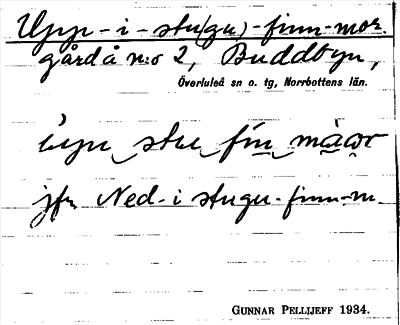 Upp-i-stu(gu)-finn-mor.
gård å n:o 2, Buddbyn,
Överluleå sn o. tg, Norrbottens län.
ùpu stu fín màwr
jfr Ned-i stugu-finn-m.
GUNNAR PELLIJEFF 1934.